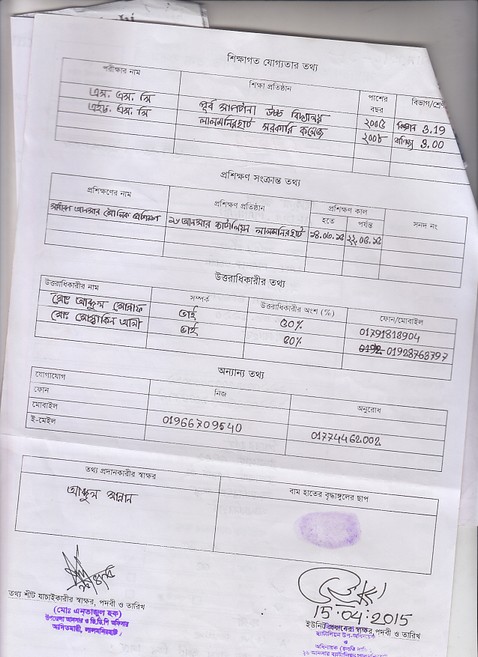 শিক্ষাগত যোগ্যতার তথ্য
পরীক্ষার নাম শিক্ষা প্রতিষ্ঠান পাশের বছর বিভাগ/শ্রে
এস. এস. সি পূর্ব সাপটানা উচ্চ বিদ্যালয় ২০০৫ বিজ্ঞান ৩.19
এইচ. এস. সি লালমনিরহাট সরকারি কলেজ ২০০৮ ৩.00
প্রশিক্ষণ সংক্রান্ত তথ্য
প্রশিক্ষণের নাম প্রশিক্ষণ প্রতিষ্ঠান প্রশিক্ষণ কাল সনদ নং
হতে পর্যন্ত
আনসার মৌলিক প্রশিক্ষণ আনসার ব্যাটালিয়ন লালমনিরহাট
উত্তরাধিকারীর তথ্য
উত্তরাধিকারীর নাম সম্পর্ক উত্তরাধিকারীর অংশ (%) ফোন/মোবাইল
মোঃ আব্দুল ভাই ৫০% 01791818904
মোঃ আলী ভাই ৫০% 01928768797
অন্যান্য তথ্য
যোগাযোগ নিজ অনুরোধ
ফোন
মোবাইল 01966709540 01774462002
ই-মেইল
তথ্য প্রদানকারীর স্বাক্ষর বাম হাতের বৃদ্ধাঙ্গুলের ছাপ
আব্দুল মান্নান
তথ্য শীট যাচাইকারীর স্বাক্ষর, পদবী ও তারিখ
(মোঃ এনতাজুল হক)
উপজেলা আনসার ও ভি,ডি,পি অফিসার
আদিতমারী, লালমনিরহাট।
15.04.2015
স্বাক্ষর, পদবী ও তারিখ